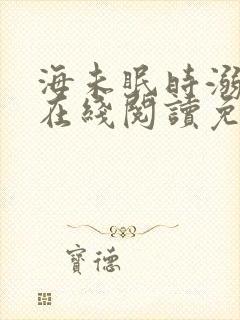 海未眠時溺
在綫閱讀免
寶德